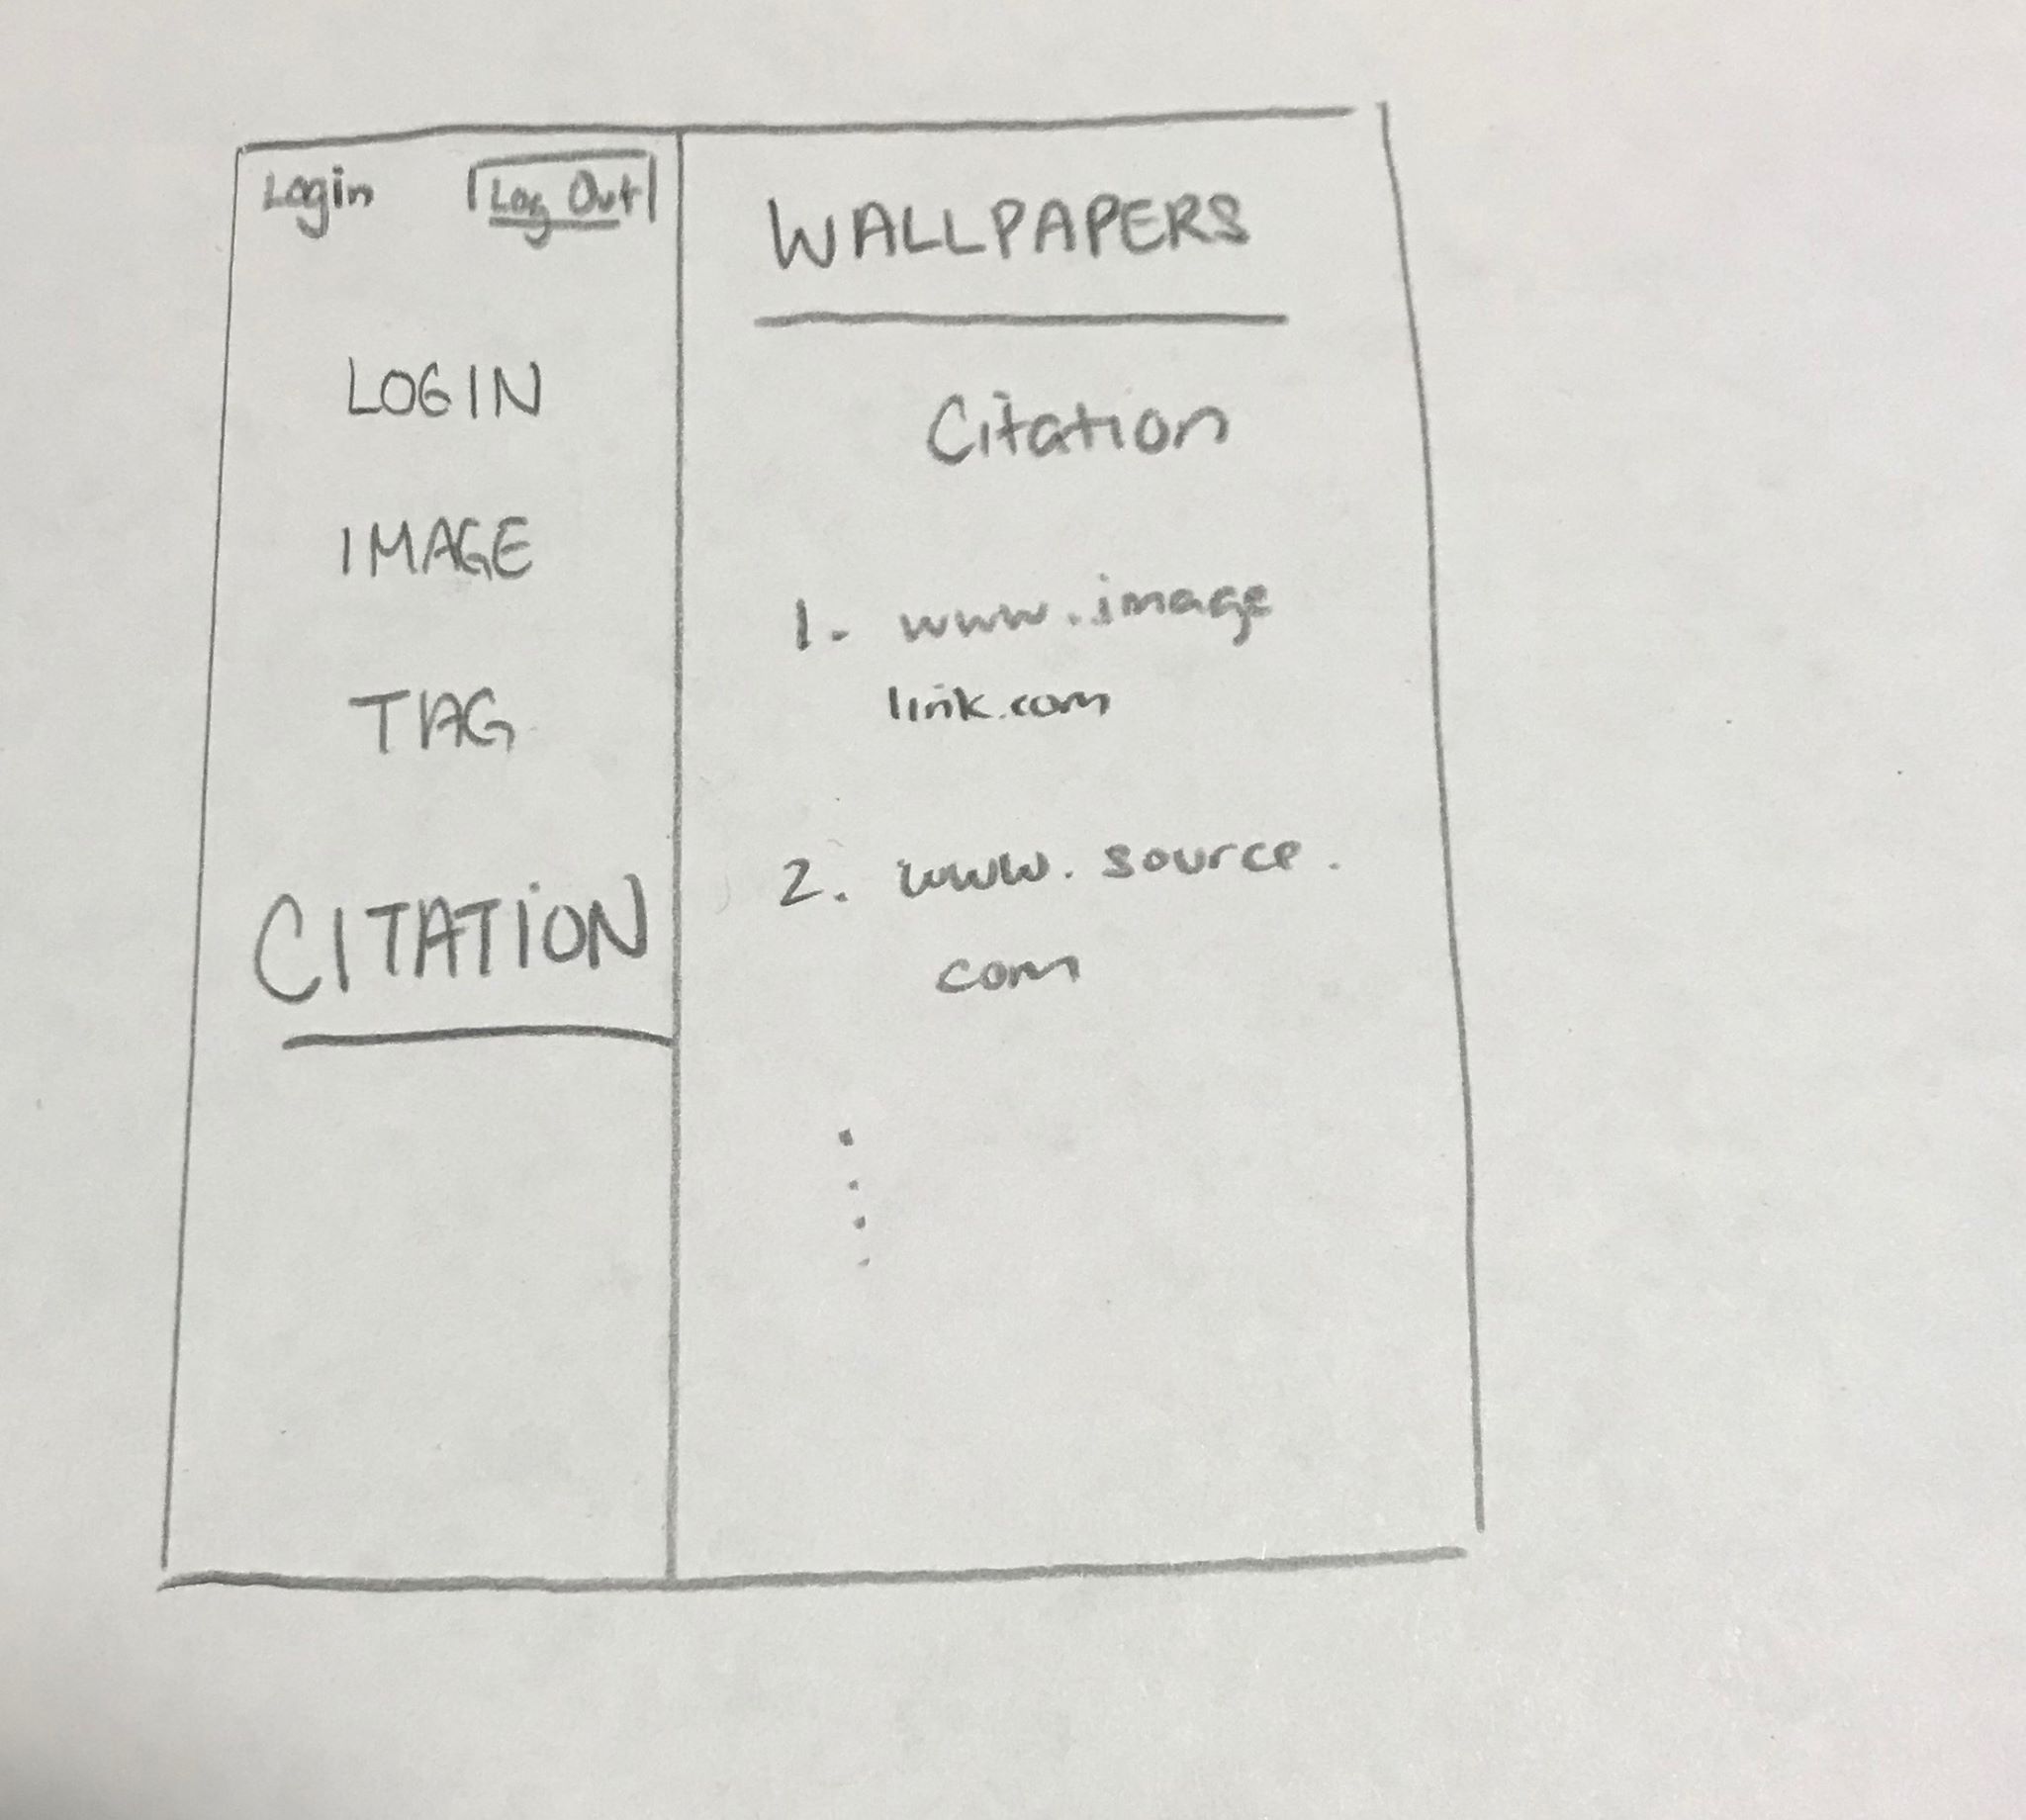 Login Log Out
LOGIN
IMAGE
TAG
CITATION
WALLPAPERS
Citation
1. www.image
link.com
2. www.source.
com